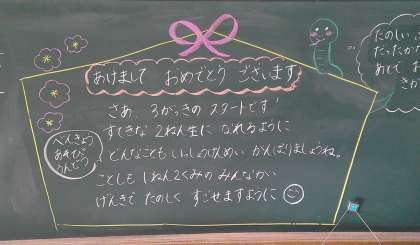 あけまして おめでとう ございます
さあ、3がっきの スタートです!
すてきな 2ねん生に なれるように
べんきょう
あそびも
うんどう
どんなことも いっしょうけんめい がんばりましょうね。
ことしも 1ねん2くみの みんなが
げんきで たのしく すごせますように
たのしい
だったか
あとで お
さか